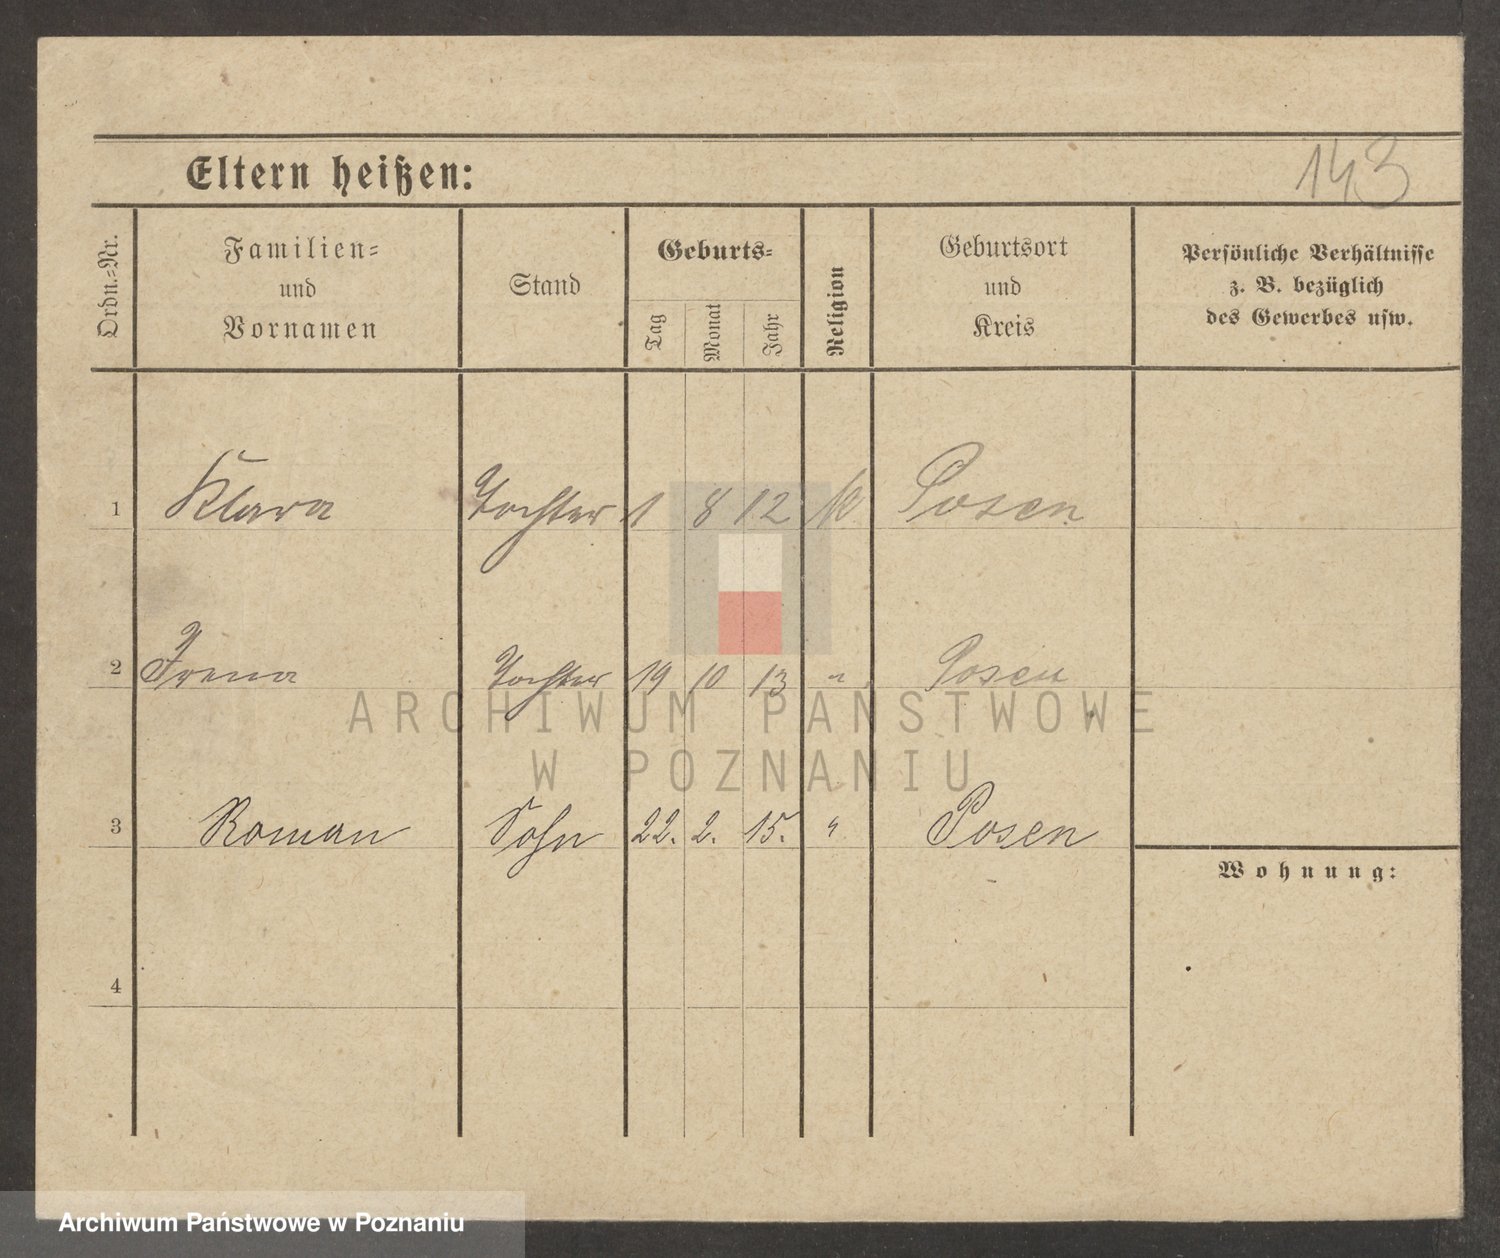 Eltern heißen:
143
Ordn.=Nr.
Familien=
und
Vornamen
Stand
Geburts=
Tag
Monat
Jahr
Religion
Geburtsort
und
Kreis
Persönliche Verhältnisse
z. B. bezüglich
des Gewerbes usw.
1 Klara Tochter 1 8 12 k Posen
2 Irena Tochter 19 10 13 " Posen
ARCHIWUM PAŃSTWOWE
W POZNANIU
3 Roman Sohn 22. 2. 15. " Posen
Wohnung:
4
Archiwum Państwowe w Poznaniu